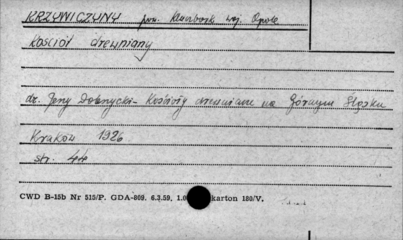 KRZYWICZYNY pow. Kluczbork woj. Opole
Kościół drewniany
dr. Jerzy Dobrzycki - Kościoły drewniane na Górnym Śląsku
Kraków 1926
str. 44
CWD B-15b Nr 515/P. GDA-869. 6.3.59. 1.0 karton 180/V.